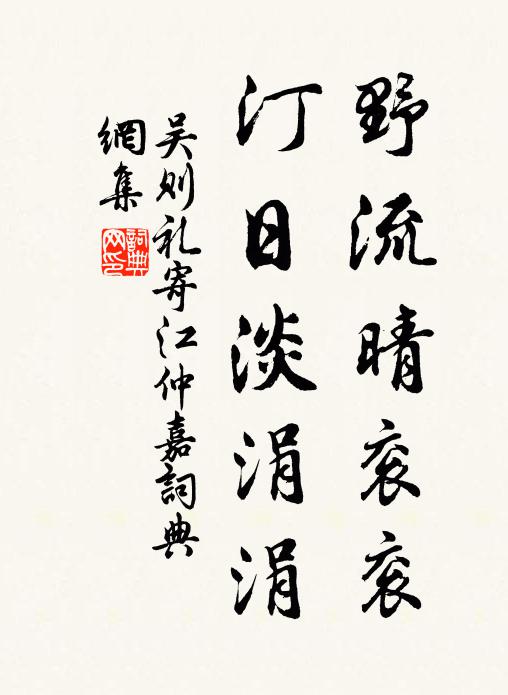 野流晴衮衮
汀日淡涓涓
吴则礼寄江仲嘉詞典
網集
詞典
网印